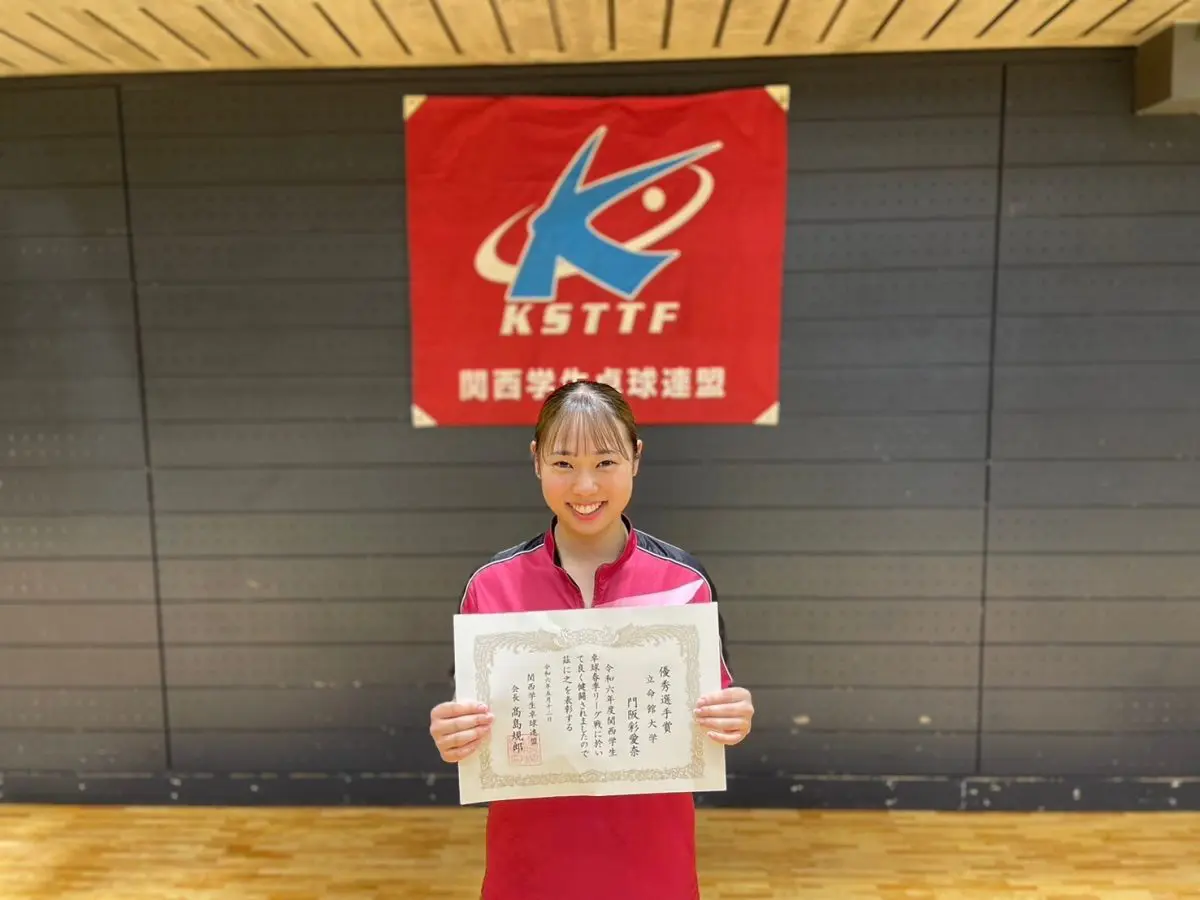 KSTTF
関西学生卓球連盟
優秀選手賞
立命館大学
門阪彩愛奈
令和六年度関西学生
卓球春季リーグ戦に於い
て良く健闘されましたので
茲に之を表彰する
令和六年五月十二日
関西学生卓球連盟
会長 高島規郎